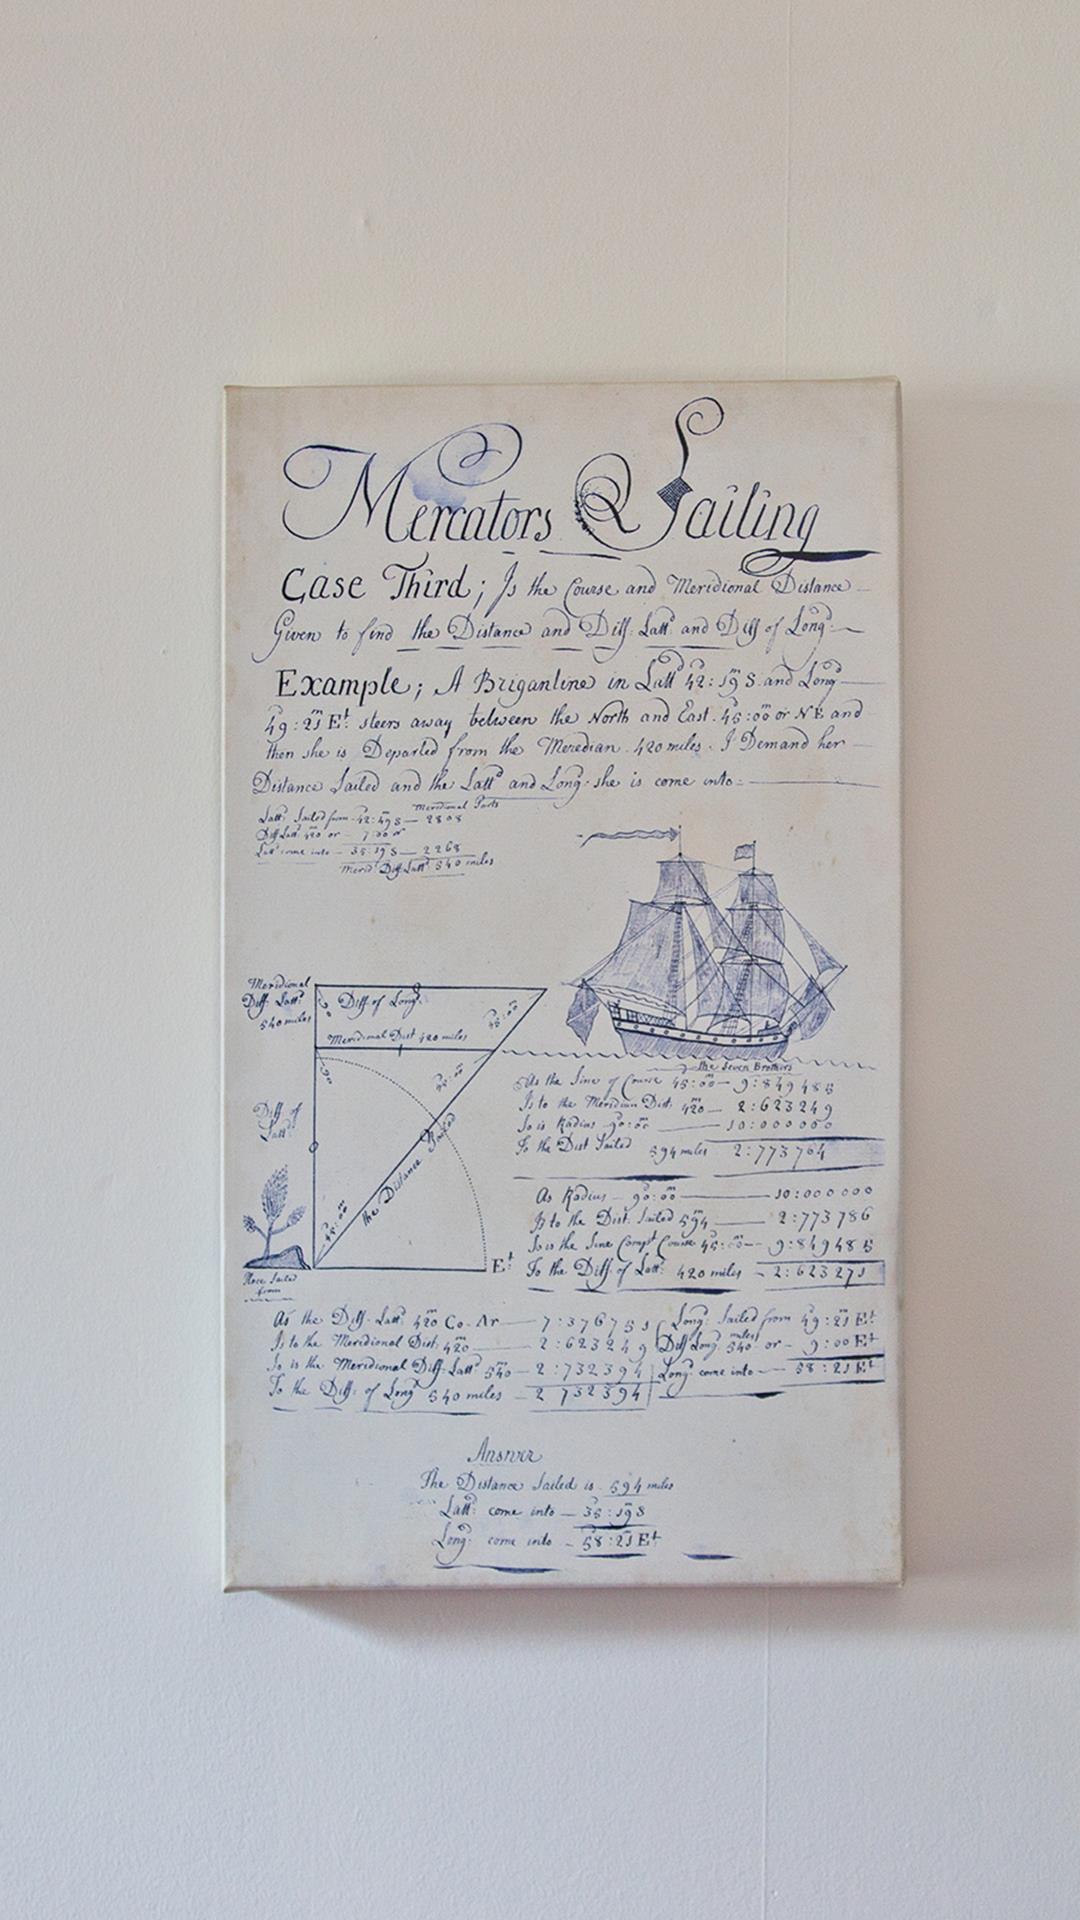 Mercators Sailing
Case Third; Is the Course and Meridional Distance
Given to find the Distance and Diff: Latt:d and Diff of Long:
Example; A Brigantine in Latt:d 42:19 S and Long:
49:21 Et steers away between the North and East 45:00 or NE and
then she is Departed from the Meredian 420 miles. I Demand her
Distance Sailed and the Latt:d and Long: she is come into:
Meridional Parts
Latt: Sailed from 42:49 S — 2808
Diff Latt: 420 or 7:00 N
Latt: come into — 35:19 S — 2268
Merid: Diff: Latt: 540 miles
Meridional
Diff: Latt:
540 miles
Diff: of Long:
45:00
Meridional Dist 420 miles
45:00
Diff of
Latt:
the Distance Sailed
45:00
Et
Place Sailed
from
The Seven Brothers
As the Sine of Course 45:00 — 9:849485
Is to the Meridian Dist: 420 — 2:623249
So is Radius 90:00 — 10:000000
To the Dist Sailed 594 miles 2:773764
As Radius — 90:00 — 10:000000
Is to the Dist: Sailed 594 — 2:773786
So is the Sine Compt Course 45:00 — 9:849485
To the Diff: of Latt: 420 miles — 2:623271
As the Diff: Latt: 420 Co-Ar — 7:376751
Is to the Meridional Dist: 420 — 2:623249
So is the Meridional Diff: Latt: 540 — 2:732394
To the Diff: of Long 540 miles — 2 732394
Long: Sailed from 49:21 Et
Diff Long: 540 miles or — 9:00 Et
Long: come into — 58:21 Et
Answer
The Distance Sailed is 594 miles
Latt: come into — 35:19 S
Long: come into — 58:21 Et